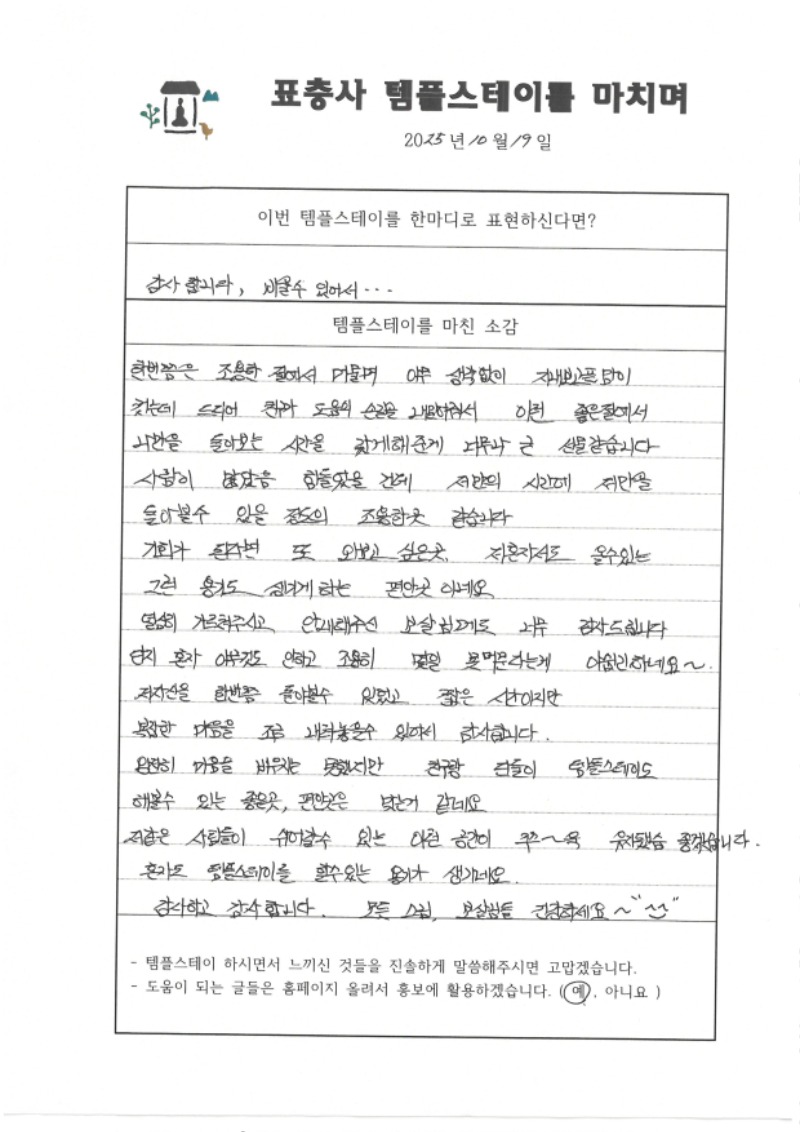 표충사 템플스테이를 마치며
2025년 10월 19일
이번 템플스테이를 한마디로 표현하신다면?
감사합니다, 비울수 있어서...
템플스테이를 마친 소감
한번쯤은 조용한 절에서 머물며 아무 생각없이 지내보고픈 맘이
컸는데 드디어 친구와 도움의 손길을 내밀어줘서 이런 좋은절에서
나만을 돌아보는 시간을 갖게해준게 너무나 큰 선물같습니다
사람이 많았음 힘들었을 건데 저만의 시간에 저만을
돌아볼수 있을 정도의 조용한곳 같습니다
기회가 된다면 또 와보고 싶은곳, 저혼자서도 올수있는
그런 용기도 생기게 하는 편안곳 이네요
열심히 가르쳐주시고 안내해주신 보살님에게도 너무 감사드립니다
단지 혼자 아무것도 안하고 조용히 몇일 못머문다는게 아쉽긴하네요~
저자신을 한번쯤 돌아볼수 있었고 짧은 시간이지만
복잡한 마음을 조금 내려놓을수 있어서 감사합니다.
완전히 마음을 비우지는 못했지만 친구랑 단둘이 템플스테이도
해볼수 있는 좋은곳, 편안곳은 맞는거 같네요
저같은 사람들이 쉬어갈수 있는 이런 공간이 쭈~욱 유지됐음 좋겠습니다.
혼자도 템플스테이를 할수있는 용기가 생기네요.
감사하고 감사합니다. 모든 스님, 보살님들 건강하세요~"^^"
- 템플스테이 하시면서 느끼신 것들을 진솔하게 말씀해주시면 고맙겠습니다.
- 도움이 되는 글들은 홈페이지 올려서 홍보에 활용하겠습니다. (예, 아니요 )